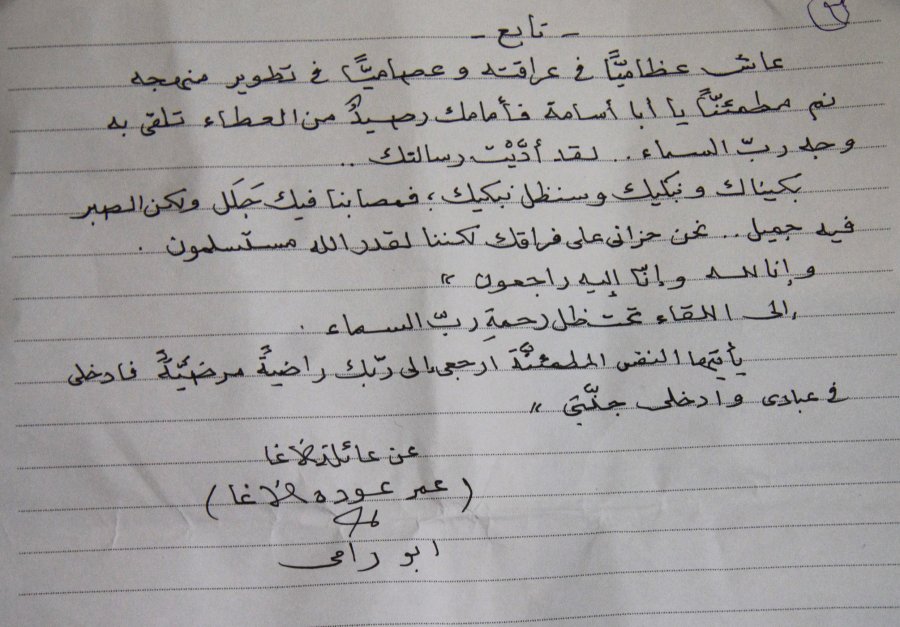 ٢
- تابع -
عاش عظاميًّا في عراقته و عصاميًّا في تطوير منهجه
نم مطمئنّاً يا أبا أسامة فأمامك رصيدٌ من العطاء تلقى به
وجه ربّ السماء .. لقد أدَّيْت رسالتك ..
بكيناك ونبكيك وسنظل نبكيك ، فمصابنا فيك جَلَل ولكن الصبر
فيه جميل .. نحن حزانى على فراقك لكننا لقدر الله مستسلمون .
و إنا لله و إنّا إليه راجعون "
إلى اللقاء تحت ظل رحمةِ ربّ السماء .
يأيتها النفس المطمئنَّة ارجعى إلى ربّك راضيةً مرضيَّةً فادخلى
في عبادى و ادخلى جنَّتي "
عن عائلة الأغا
( عمر عوده الأغا )
ابو رامى